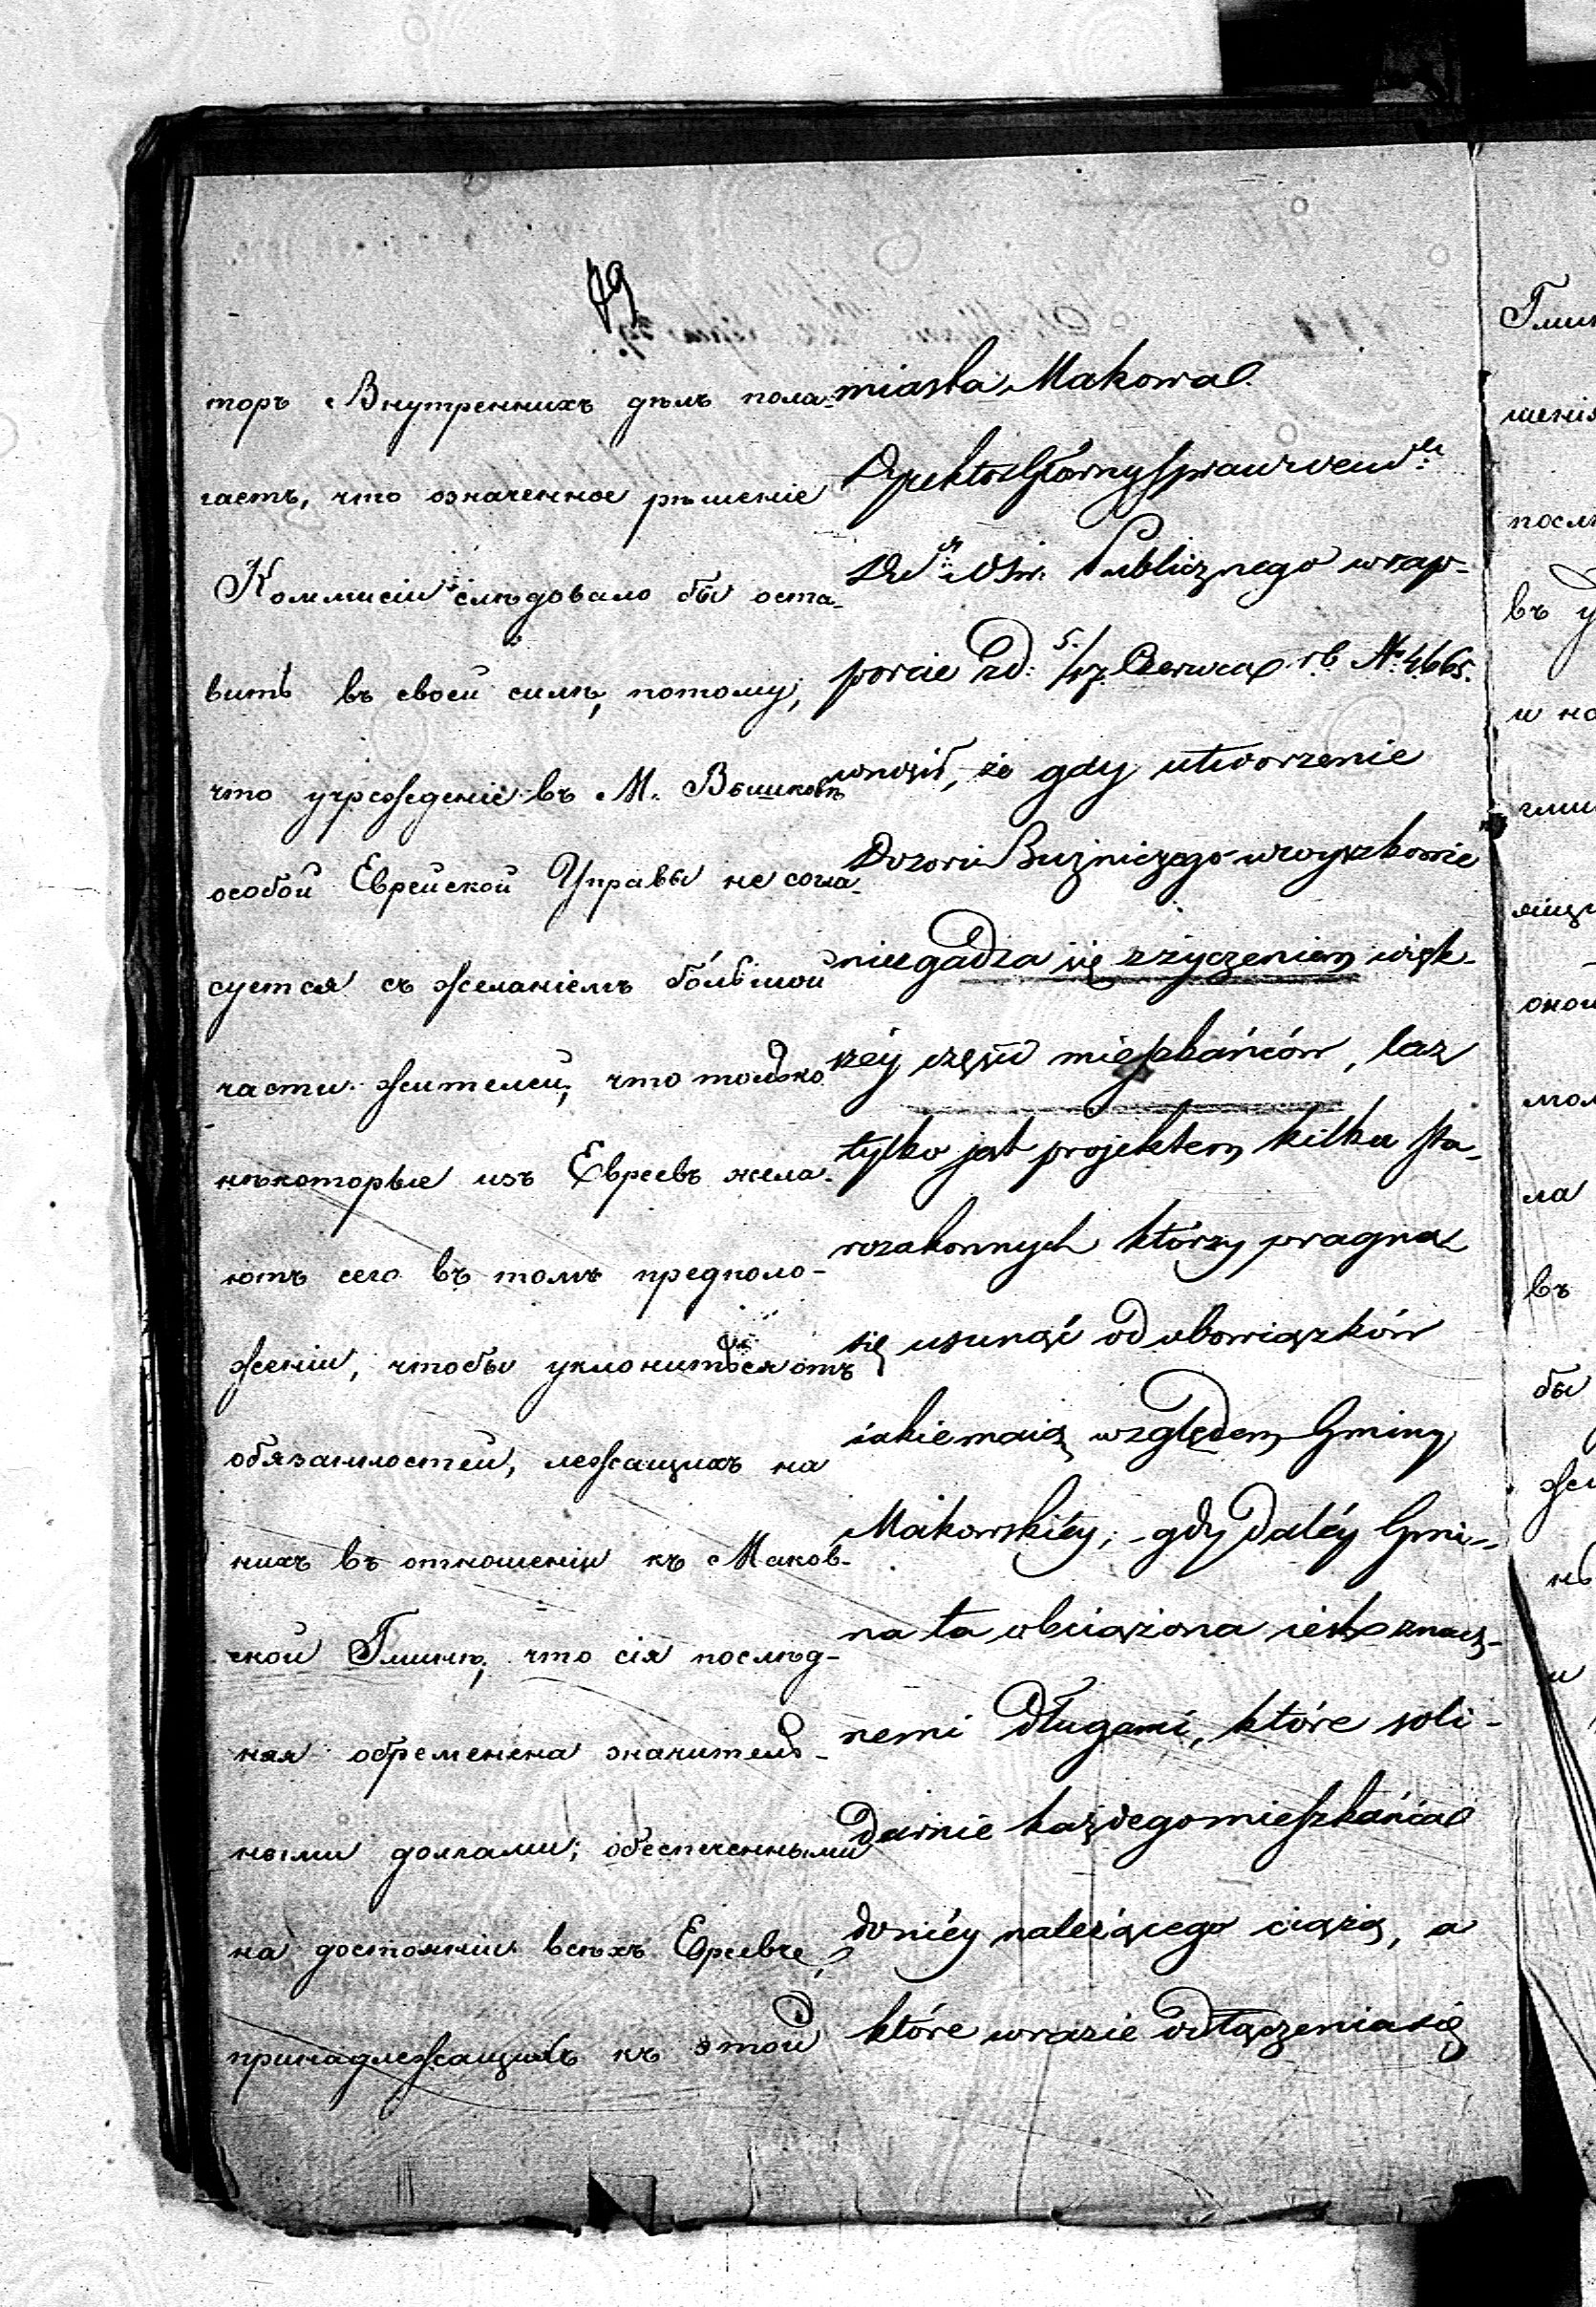 49
торъ Внутреннихъ дѣлъ пола-
гаетъ, что означенное рѣшеніе
Коммисіи слѣдовало бы оста-
вить въ своей силѣ, потому,
что учрежденіе въ М. Вышковѣ
особой Еврейской Управы не согла-
суется съ желаніемъ большой
части жителей, что только
нѣкоторые изъ Евреевъ жела-
ютъ сего въ томъ предполо-
женіи, чтобы уклониться отъ
обязанностей, лежащихъ на
нихъ въ отношеніи къ Маков-
ской Гминѣ, что сія послѣд-
няя обременена значитель-
ными долгами, обеспеченными
на достояніи всѣхъ Евреевъ,
принадлежащихъ къ этой
miasta Makowa.
Dyrektor Główny Spraw Wewn
Du: i Ośw. Publicznego w rap-
porcie z d: 5/17 Czerwca r.b. № 4665.
wnosił, że gdy utworzenie
Dozoru Bużniczego w Wyszkowie
nie zgadza się z życzeniem więk-
széy części mieszkańców, lecz
tylko jest projektem kilku sta-
rozakonnych którzy pragną
się usunąć od obowiązków
iakie maią względem Gminy
Makowskiéy, gdy daléy Gmi-
na ta obciążona iest znacz-
nemi długami, które soli-
darnie każdego mieszkańca
do niéy należącego ciążą, a
które w razie odłączenia się